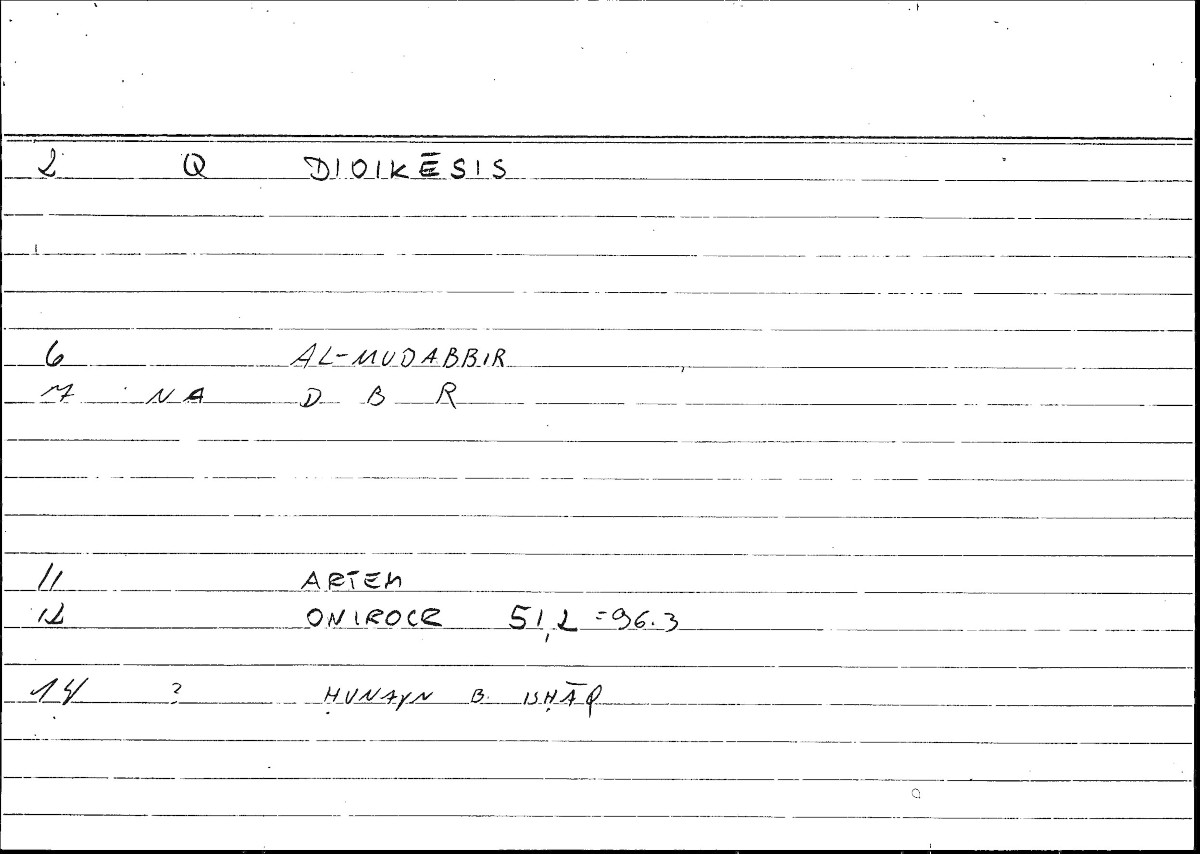 2 Q DIOIKĒSIS
6 AL-MUDABBIR
7 NA D B R
11 ARTEM
12 ONIROCR 51,2 = 96.3
14 ? ḤUNAYN B. ISḤĀQ